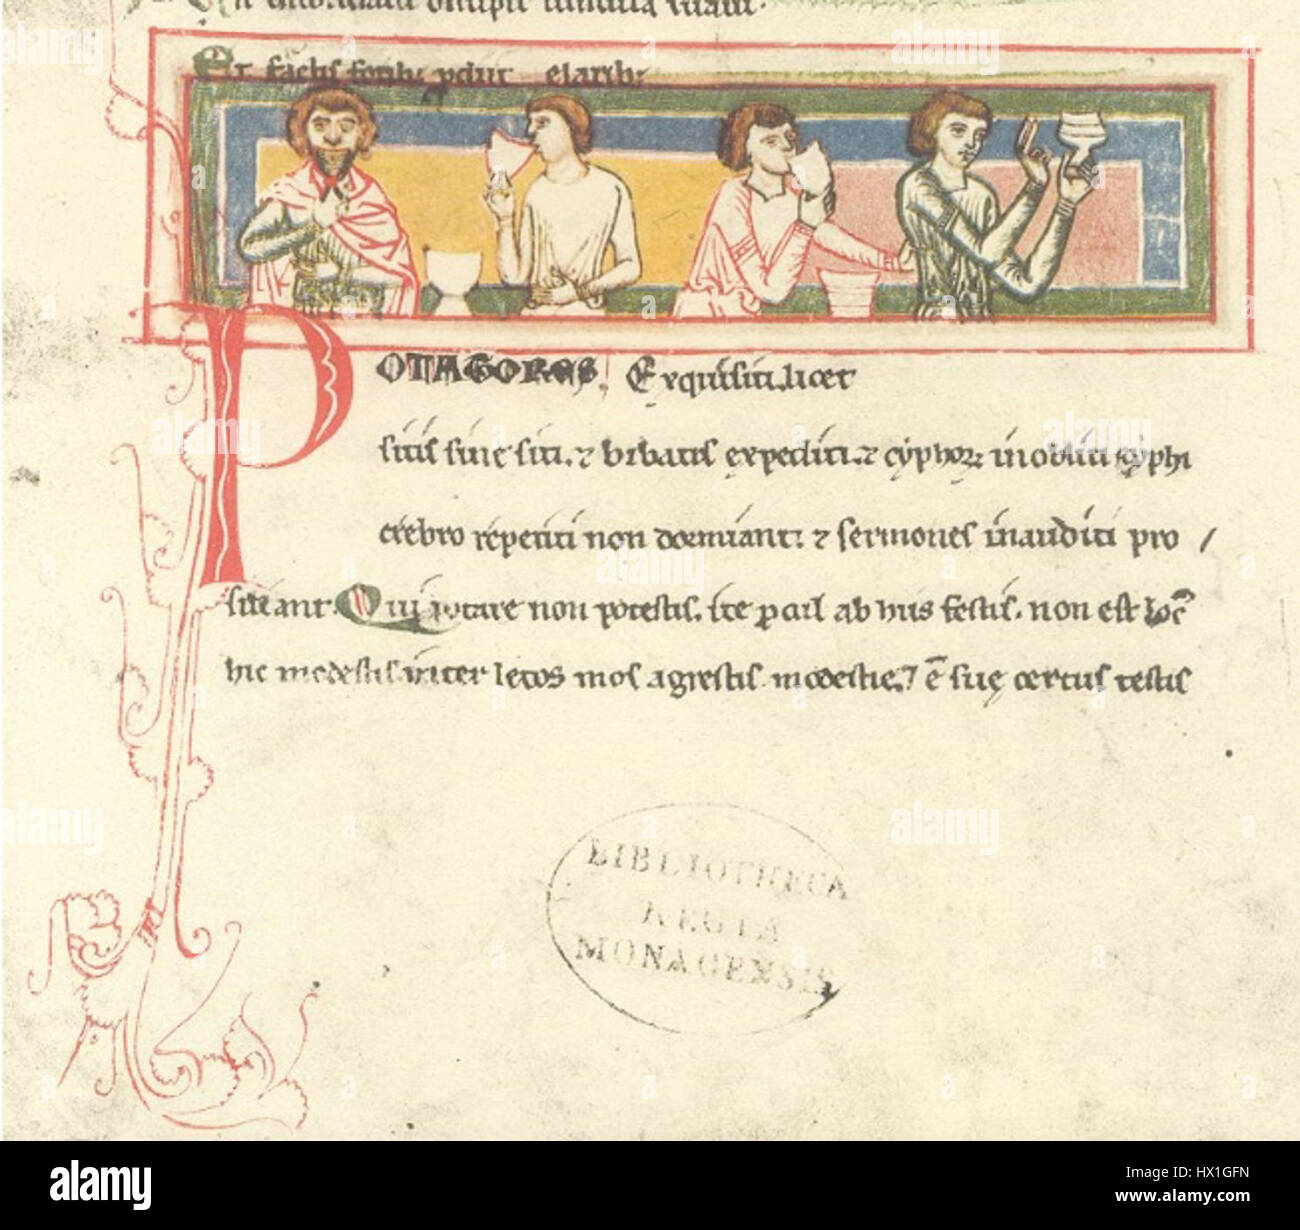 Et factis foribus perdunt elarib;
POTAGORES, Exquisiti licet
sitis sine siti. ⁊ bibatis expediti. ⁊ cyphorꝝ inobliti cyphi
crebro repetiti non dormiant: ⁊ sermones inauditi pro
siliant. Qui potare non potestis. ite pcul ab his festis. non est loc̄
hic modestis inter letos mos agrestis modestie. ⁊ ē sue certus testis
BIBLIOTHECA
REGIA
MONACENSIS
alamy
Image ID: HX1GFN
www.alamy.com